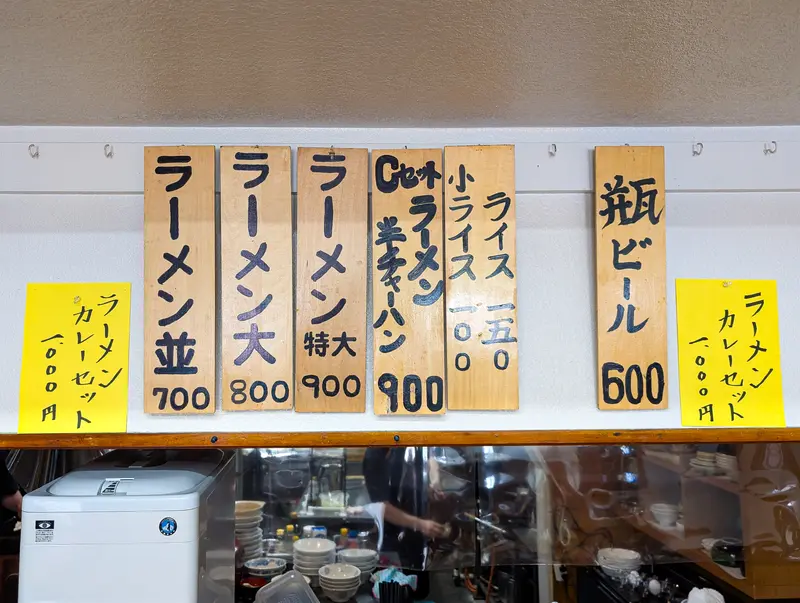 ラーメン並
700
ラーメン大
800
ラーメン特大
900
Cセット
ラーメン
半チャーハン
900
ライス 一五〇
小ライス 一〇〇
瓶ビール
600
ラーメン
カレーセット
1,000円
ラーメン
カレーセット
1,000円